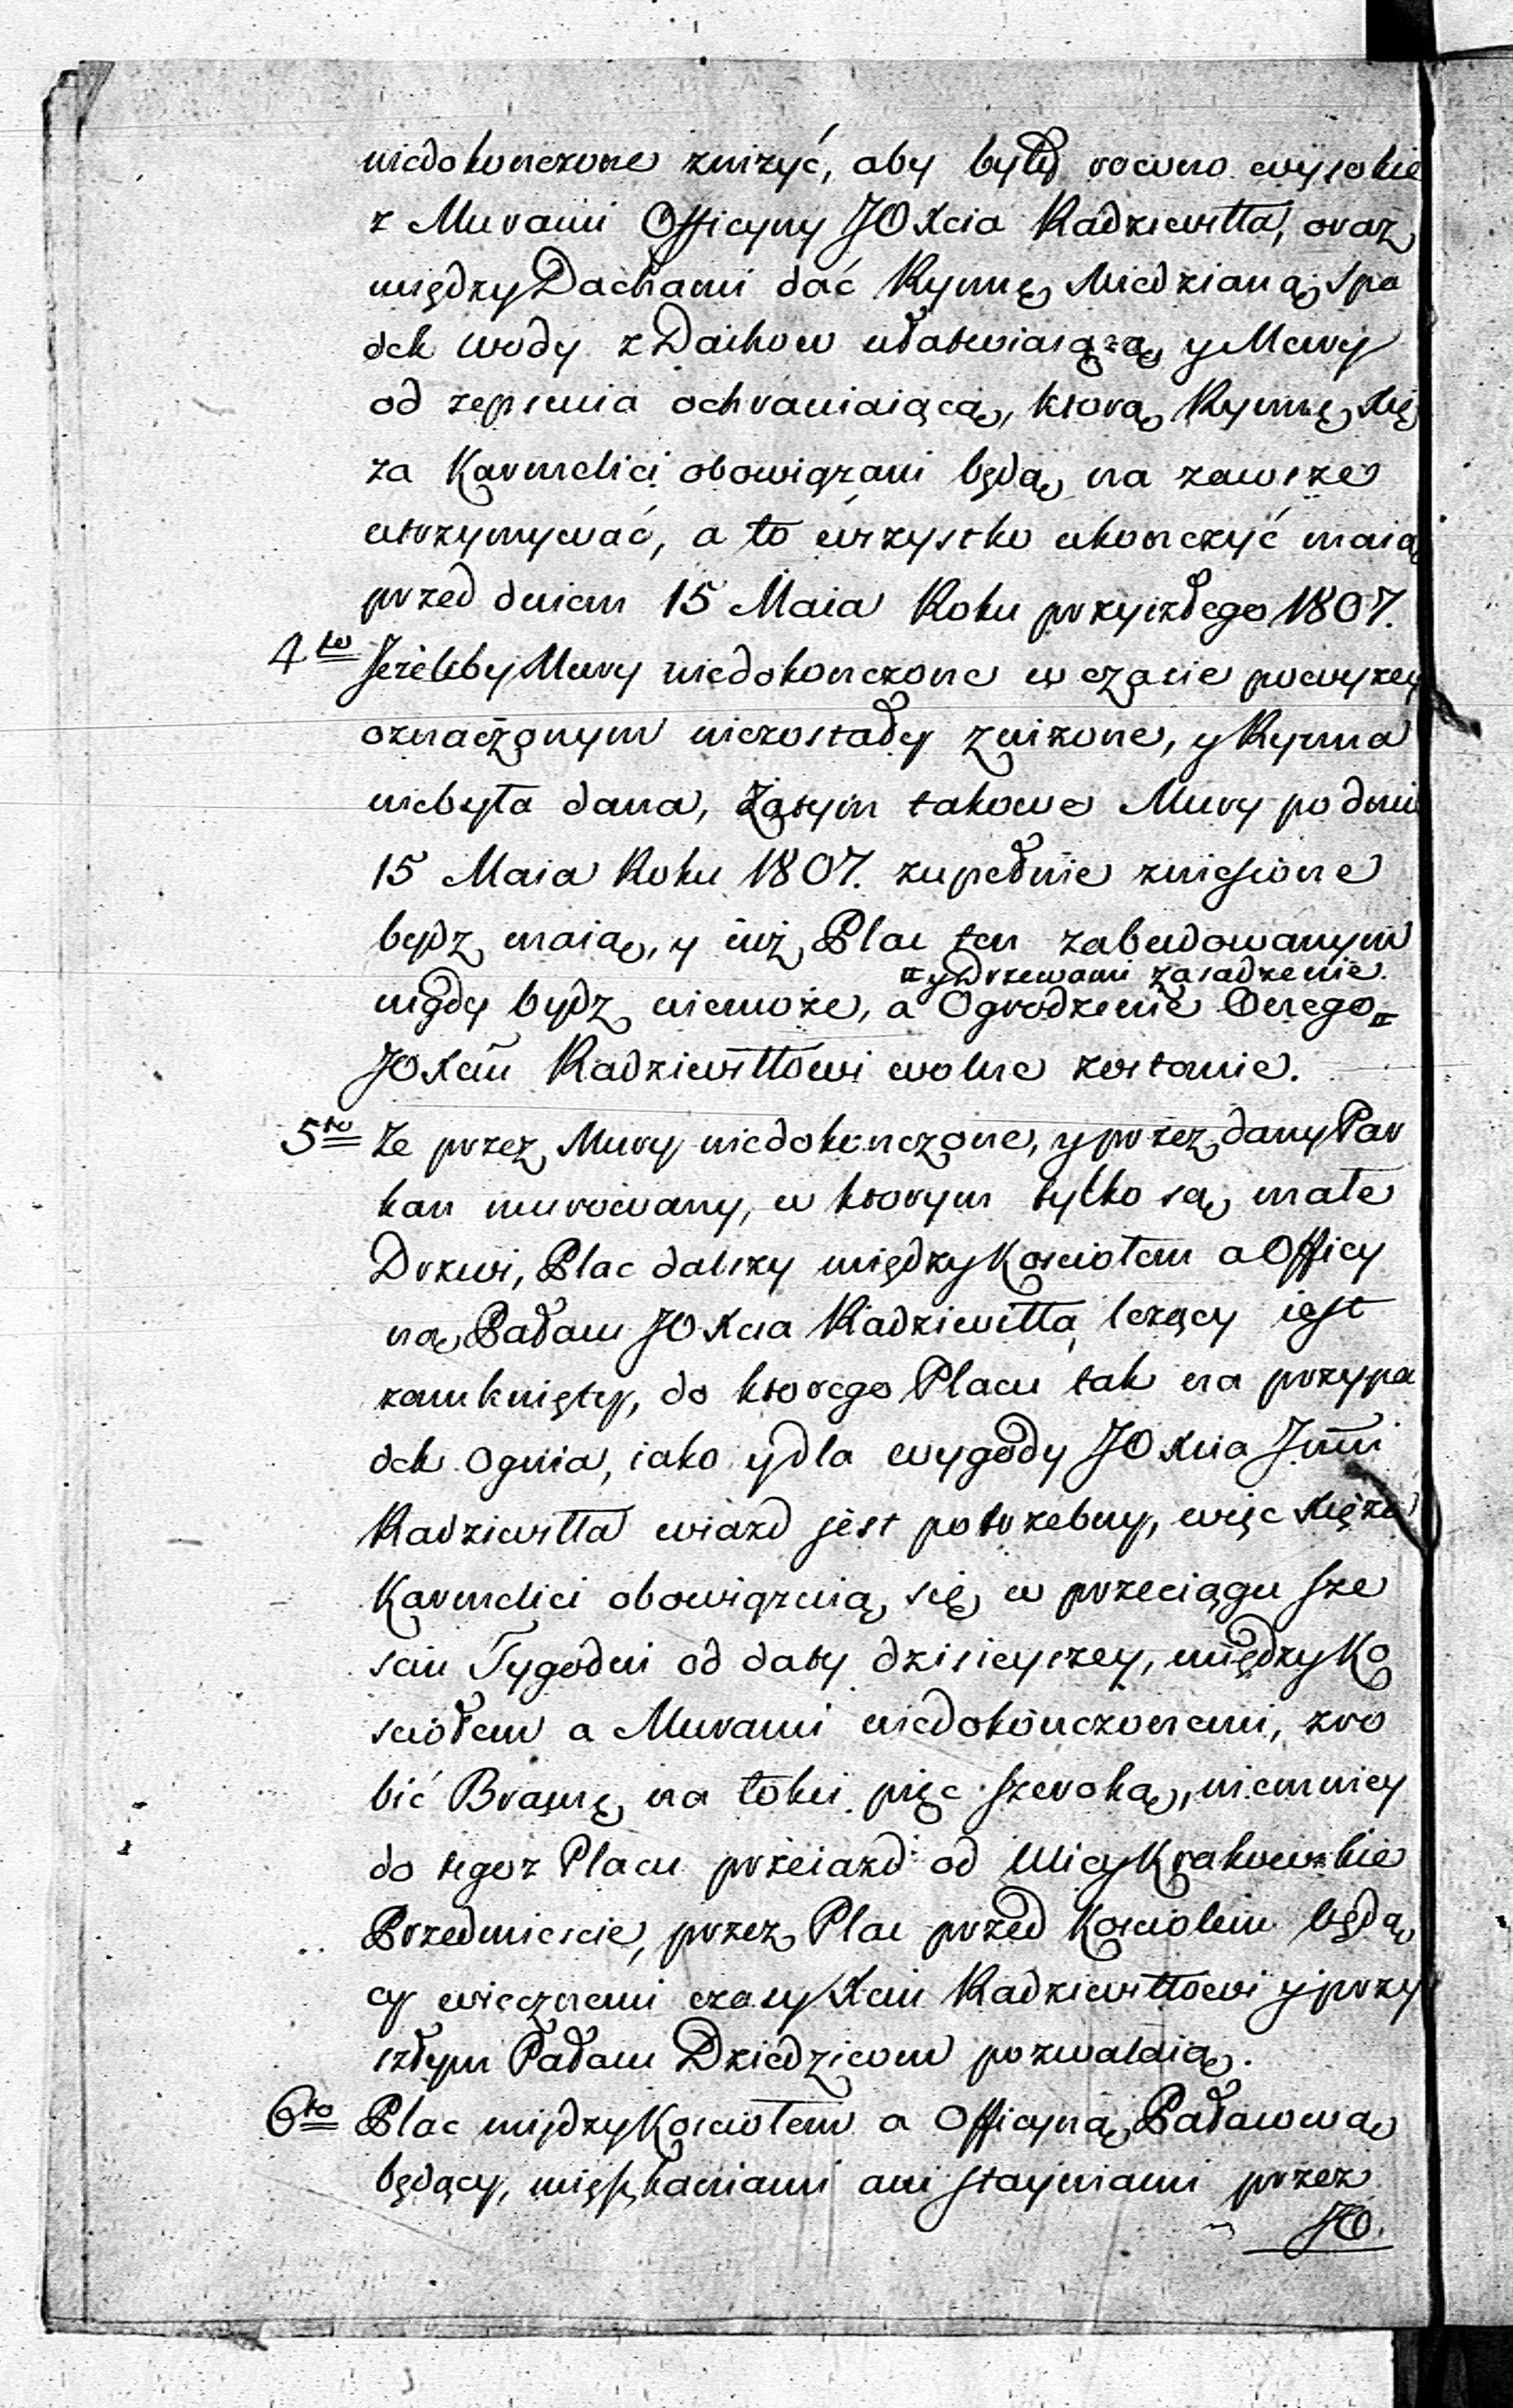 niedokonczone zniżyć, aby były rowno wysokie
z Murami Officyny JOXcia Radziwiłła, oraz
między Dachami dać Rynnę Miedzianą, spa
dek wody z Dachow ułatwiaiącą, y Mury
od zepsucia ochraniaiącą, ktorą Rynnę Xię
za Karmelici obowiązani będą na zawsze
utrzymywać, a to wszystko ukonczyć maią
przed dniem 15 Maia Roku przyszłego 1807.
4to Jeżeliby Mury niedokonczone w czasie powyzey
oznaczonym niezostały zniżone, y Rynna
niebyła dana, Zatym takowe Mury po dniu
15 Maia Roku 1807. zupełnie zniesione
bydz maią, y iuż Plac ten zabudowanym
= y Drzewami zasadzenie.
nigdy bydz niemoże, a Ogrodzenie Onego =
JOXciu Radziwiłłowi wolne zostanie.
5to Ze przez Mury niedokonczone, y przez dany Par
kan murowany, w ktorym tylko są małe
Drzwi, Plac dalszy między Kosciołem a Officy
ną Pałacu JOXcia Radziwiłła, leżący iest
zamknięty, do ktorego Placu tak na przypa
dek Ognia, iako y dla wygody JOXcia Jmci
Radziwiłła wiazd jest potrzebny, więc Xięża
Karmelici obowiązuią się w przeciągu sze
sciu Tygodni od daty dzisieyszey, między Ko
sciołem a Murami niedokonczonemi, zro
bić Bramę na łokci pięc szeroką, niemniey
do tegoz Placu przeiazd od Ulicy Krakowskie
Przedmiescie, przez Plac przed Kosciolem będą
cy wiecznemi czasy Xciu Radziwiłłowi y przy
szłym Pałacu Dziedzicom pozwalaią.
6to Plac między Kosciołem a Officyną Pałacową
będący, mięszkaniami ani stayniami przez
JO.